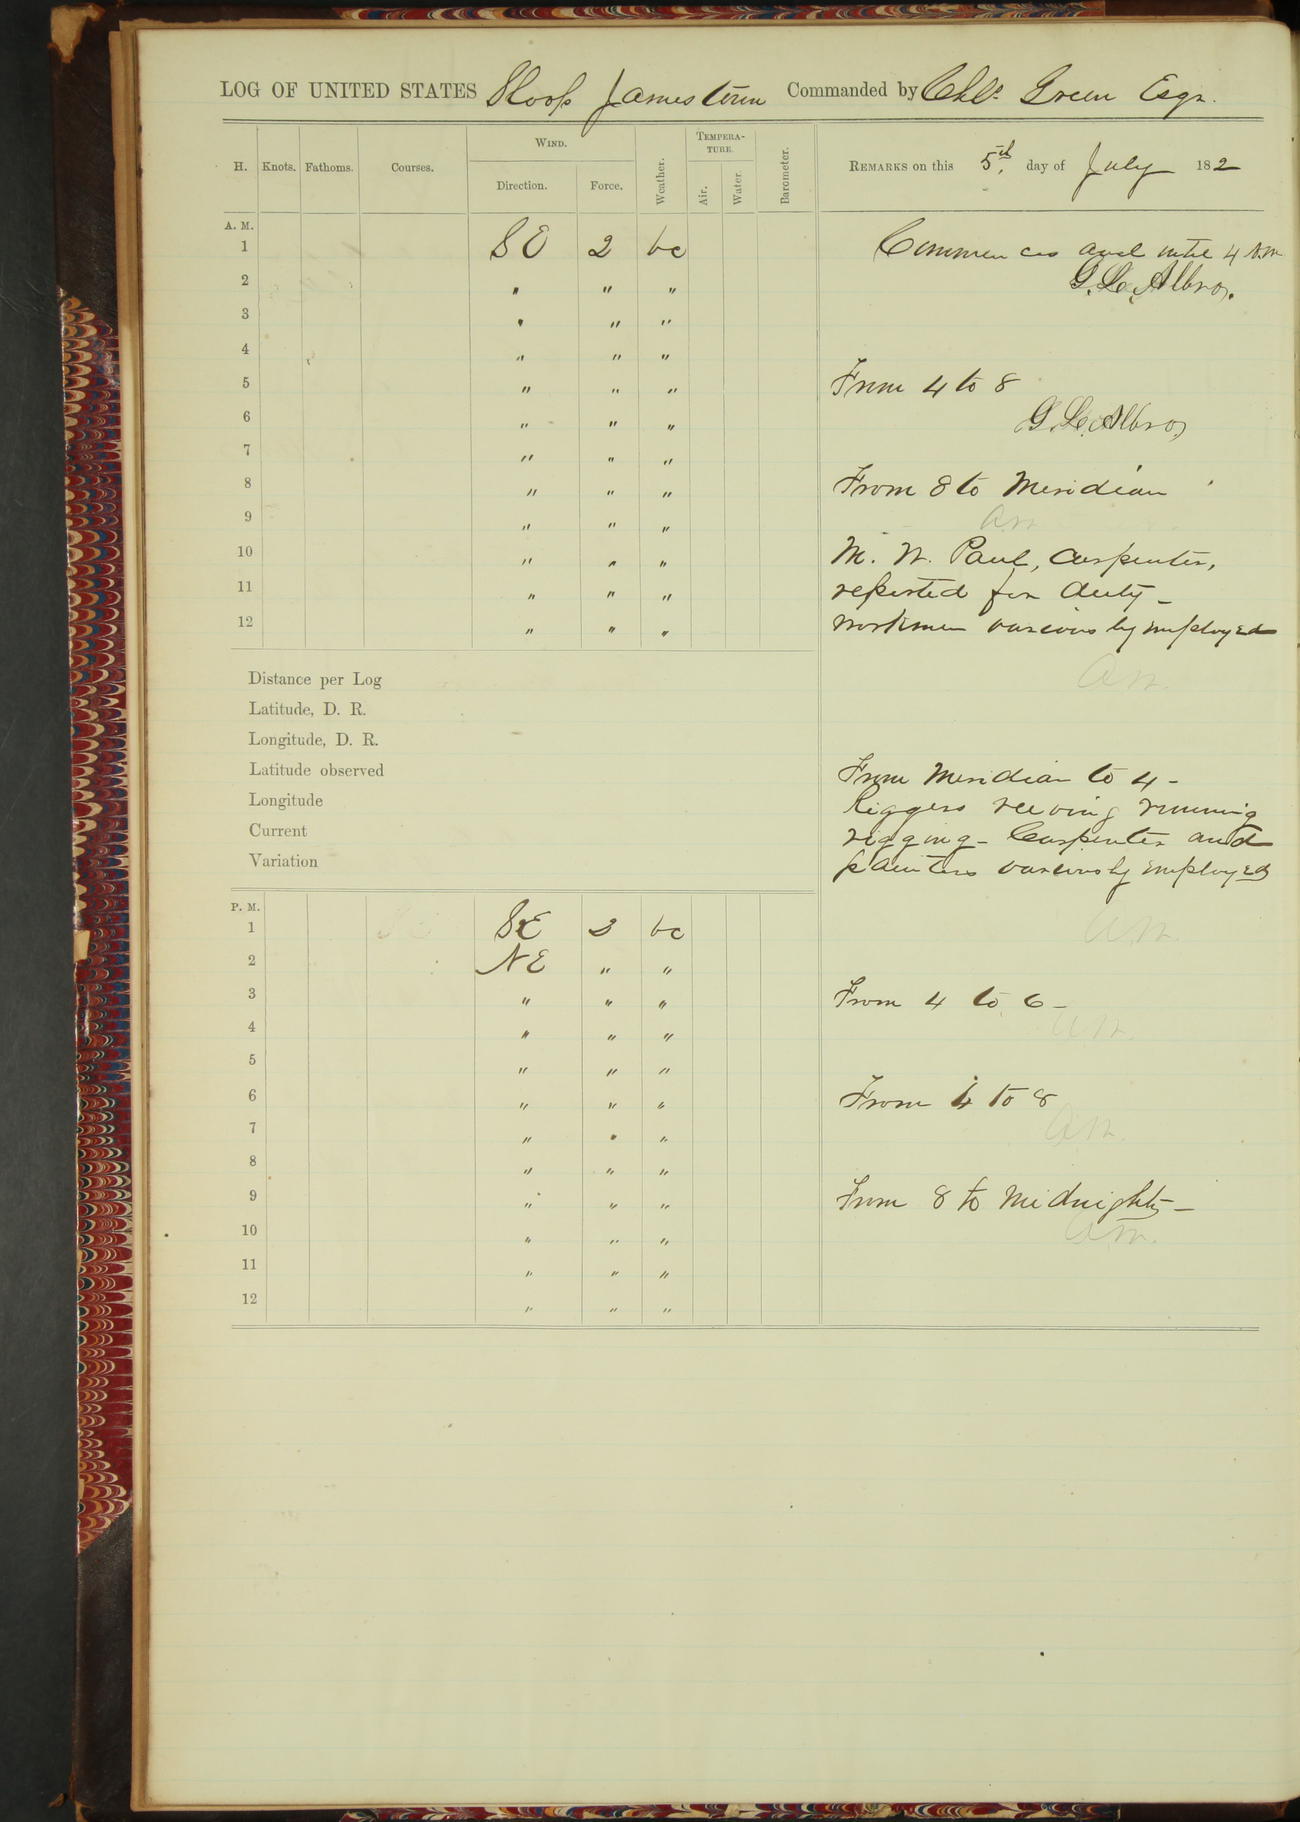 LOG OF UNITED STATES Sloop Jamestown Commanded by Chls. Green Esqr.
H. Knots. Fathoms. Courses. WIND. Direction. Force. Weather. TEMPERATURE. Air. Water. Barometer. REMARKS on this 5th. day of July 182
A. M.
1 SE 2 bc Commences and until 4 A.M.
2 " " " G. L. Albro,.
3 " " "
4 " " "
5 " " " From 4 to 8
6 " " " G. L. Albro,
7 " " "
8 " " " From 8 to Meridian
9 " " " A.M.
10 " " " M. W. Paul, Carpenter,
11 " " " reported for duty –
12 " " " workmen variously employed
A M.
Distance per Log
Latitude, D. R.
Longitude, D. R.
Latitude observed From Meridian to 4 –
Longitude Riggers reeving running
Current rigging – Carpenter and
Variation painters variously employed
P. M.
1 SE 3 bc A.M.
2 NE " "
3 " " " From 4 to 6 –
4 " " " A.M.
5 " " "
6 " " " From 6 to 8
7 " " " A.M.
8 " " "
9 " " " From 8 to Midnight –
10 " " " A.M.
11 " " "
12 " " "